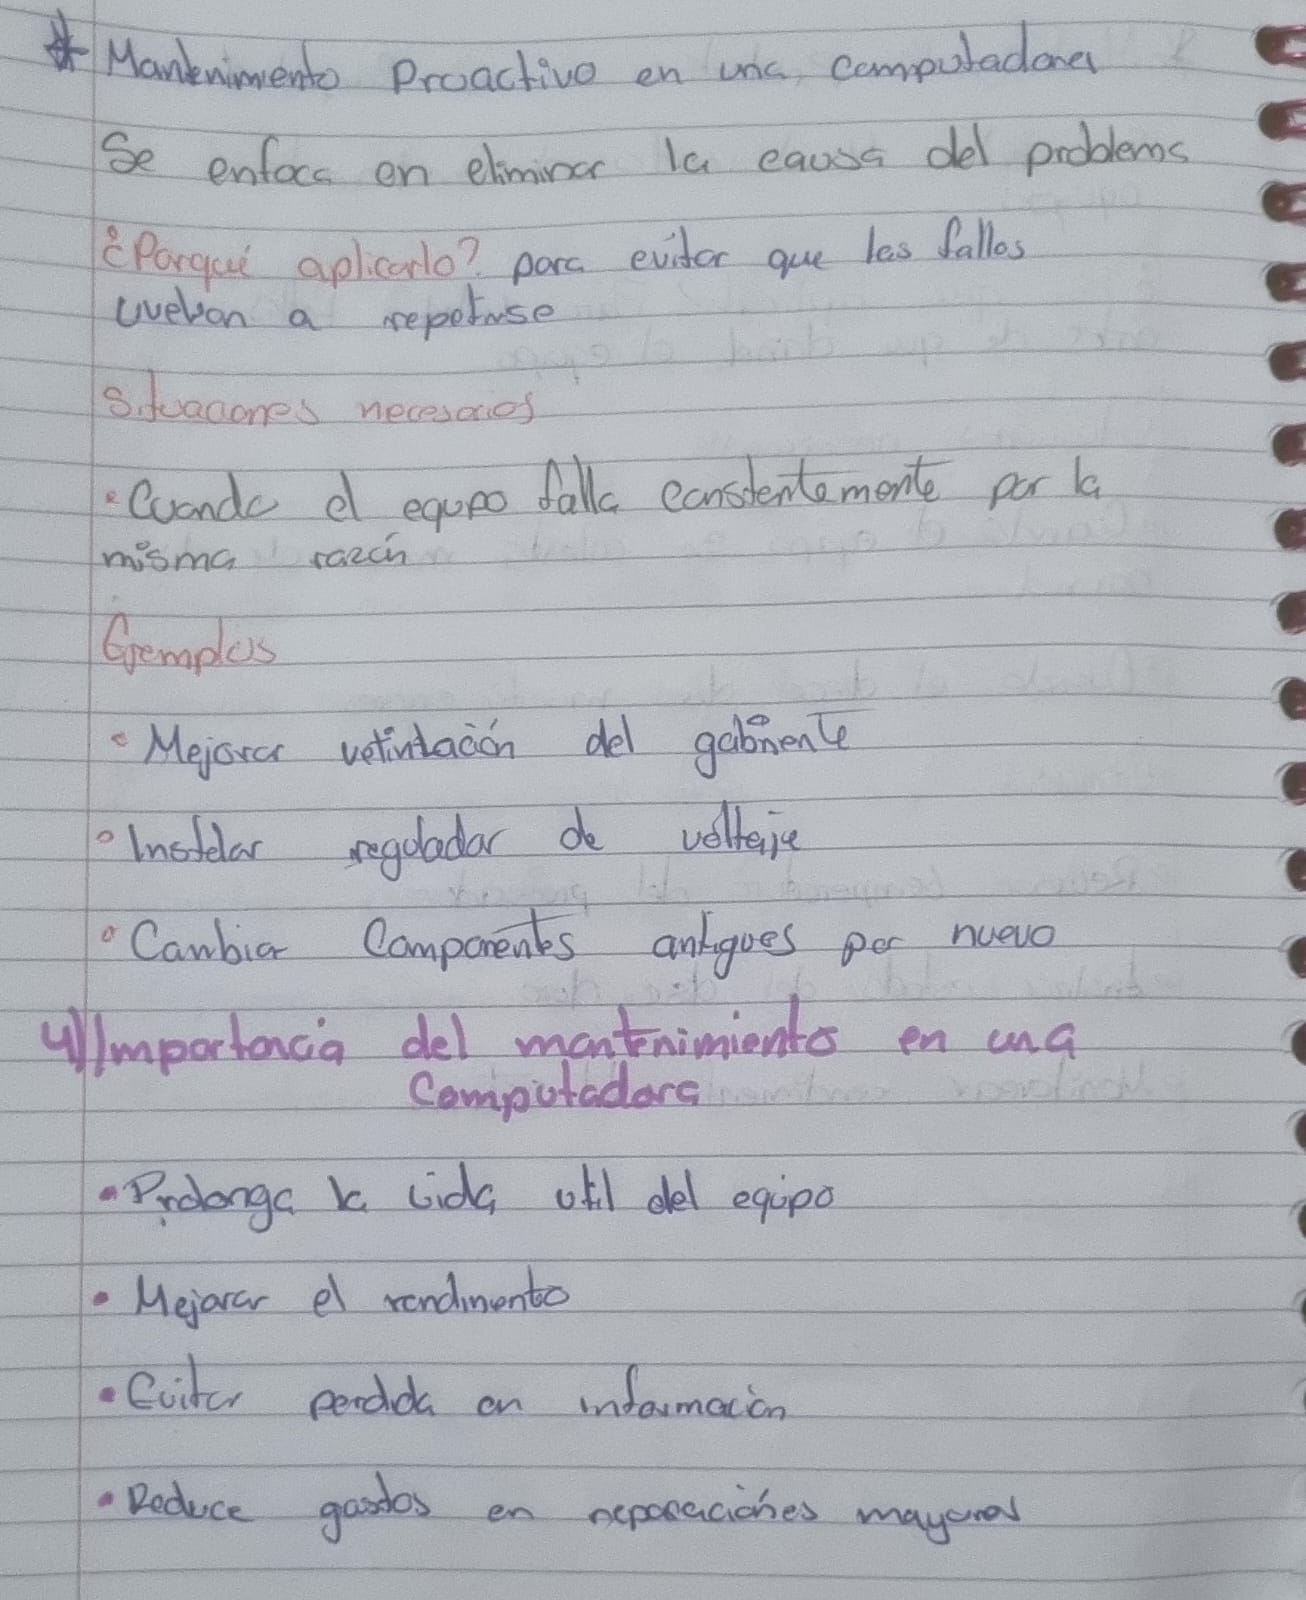 * Mantenimiento Proactivo en una computadora
Se enfoca en eliminar la causa del problema
¿Porqué aplicarlo? para evitar que las fallos
vuelvan a repetirse
Situaciones necesarios
• Cuando el equipo falla constantemente por la
misma razón
Ejemplos
• Mejorar vetintación del gabinente
• Instalar regulador de voltaje
• Cambiar Componentes antigues por nuevo
4) Importancia del mantenimiento en una
Computadora
• Prolonga la vida util del equipo
• Mejorar el rendimento
• Evitar perdida en información
• Reduce gastos en reparaciónes mayores